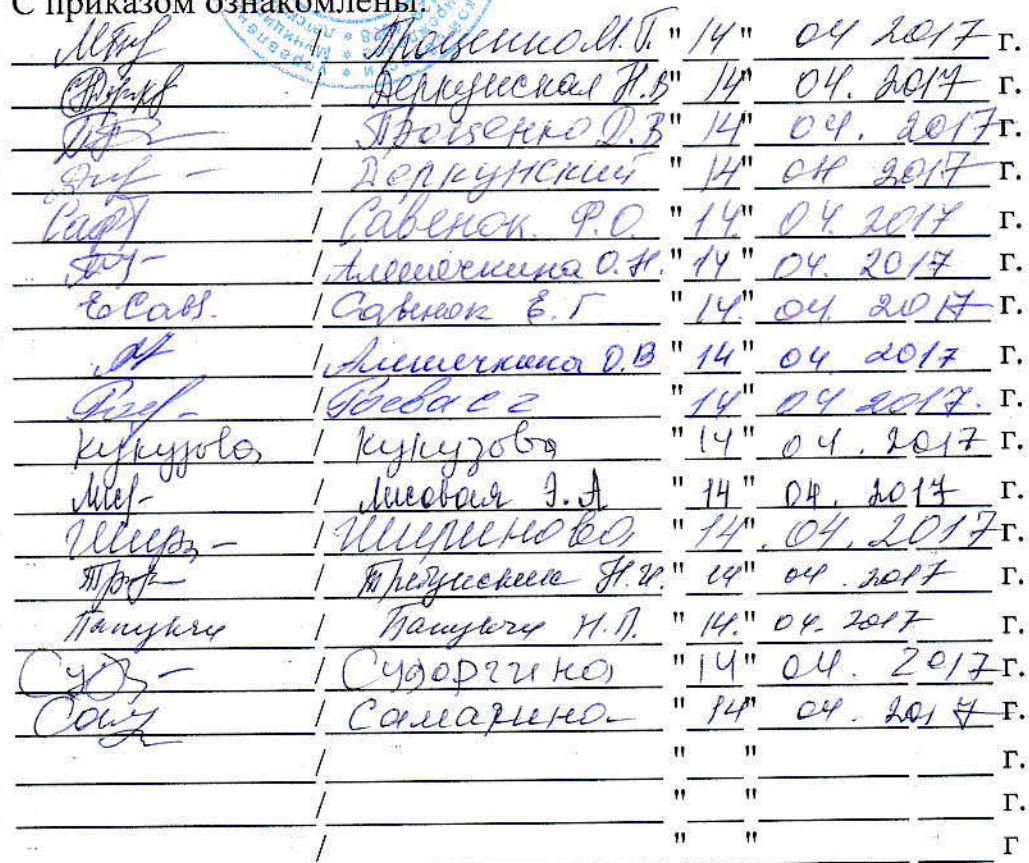 С приказом ознакомлены:
/ Троценко М.Г. "14" 04 2017 г.
/ Деркунская Н.В "14" 04. 2017 г.
/ Троценко Д.В "14" 04. 2017 г.
/ Деркунский "14" 04 2017 г.
/ Савенок. Ф.О. "14" 04. 2017 г.
/ Алешечкина О.Н. "14" 04. 2017 г.
ЕСав. / Савенок Е.Г "14." 04. 2017 г.
/ Алешечкина О.В "14" 04 2017 г.
/ "14" 04 2017. г.
кукузова / кукузова "14" 04. 2017 г.
/ Лисовая Э.А "14" 04. 2017 г.
/ Ширинова "14". 04. 2017 г.
/ Н.И. "14" 04. 2017 г.
/ Н.П. "14." 04. 2017 г.
/ "14" 04. 2017 г.
/ Самарина "14" 04. 2017 г.
/ " " г.
/ " " г.
/ " " г